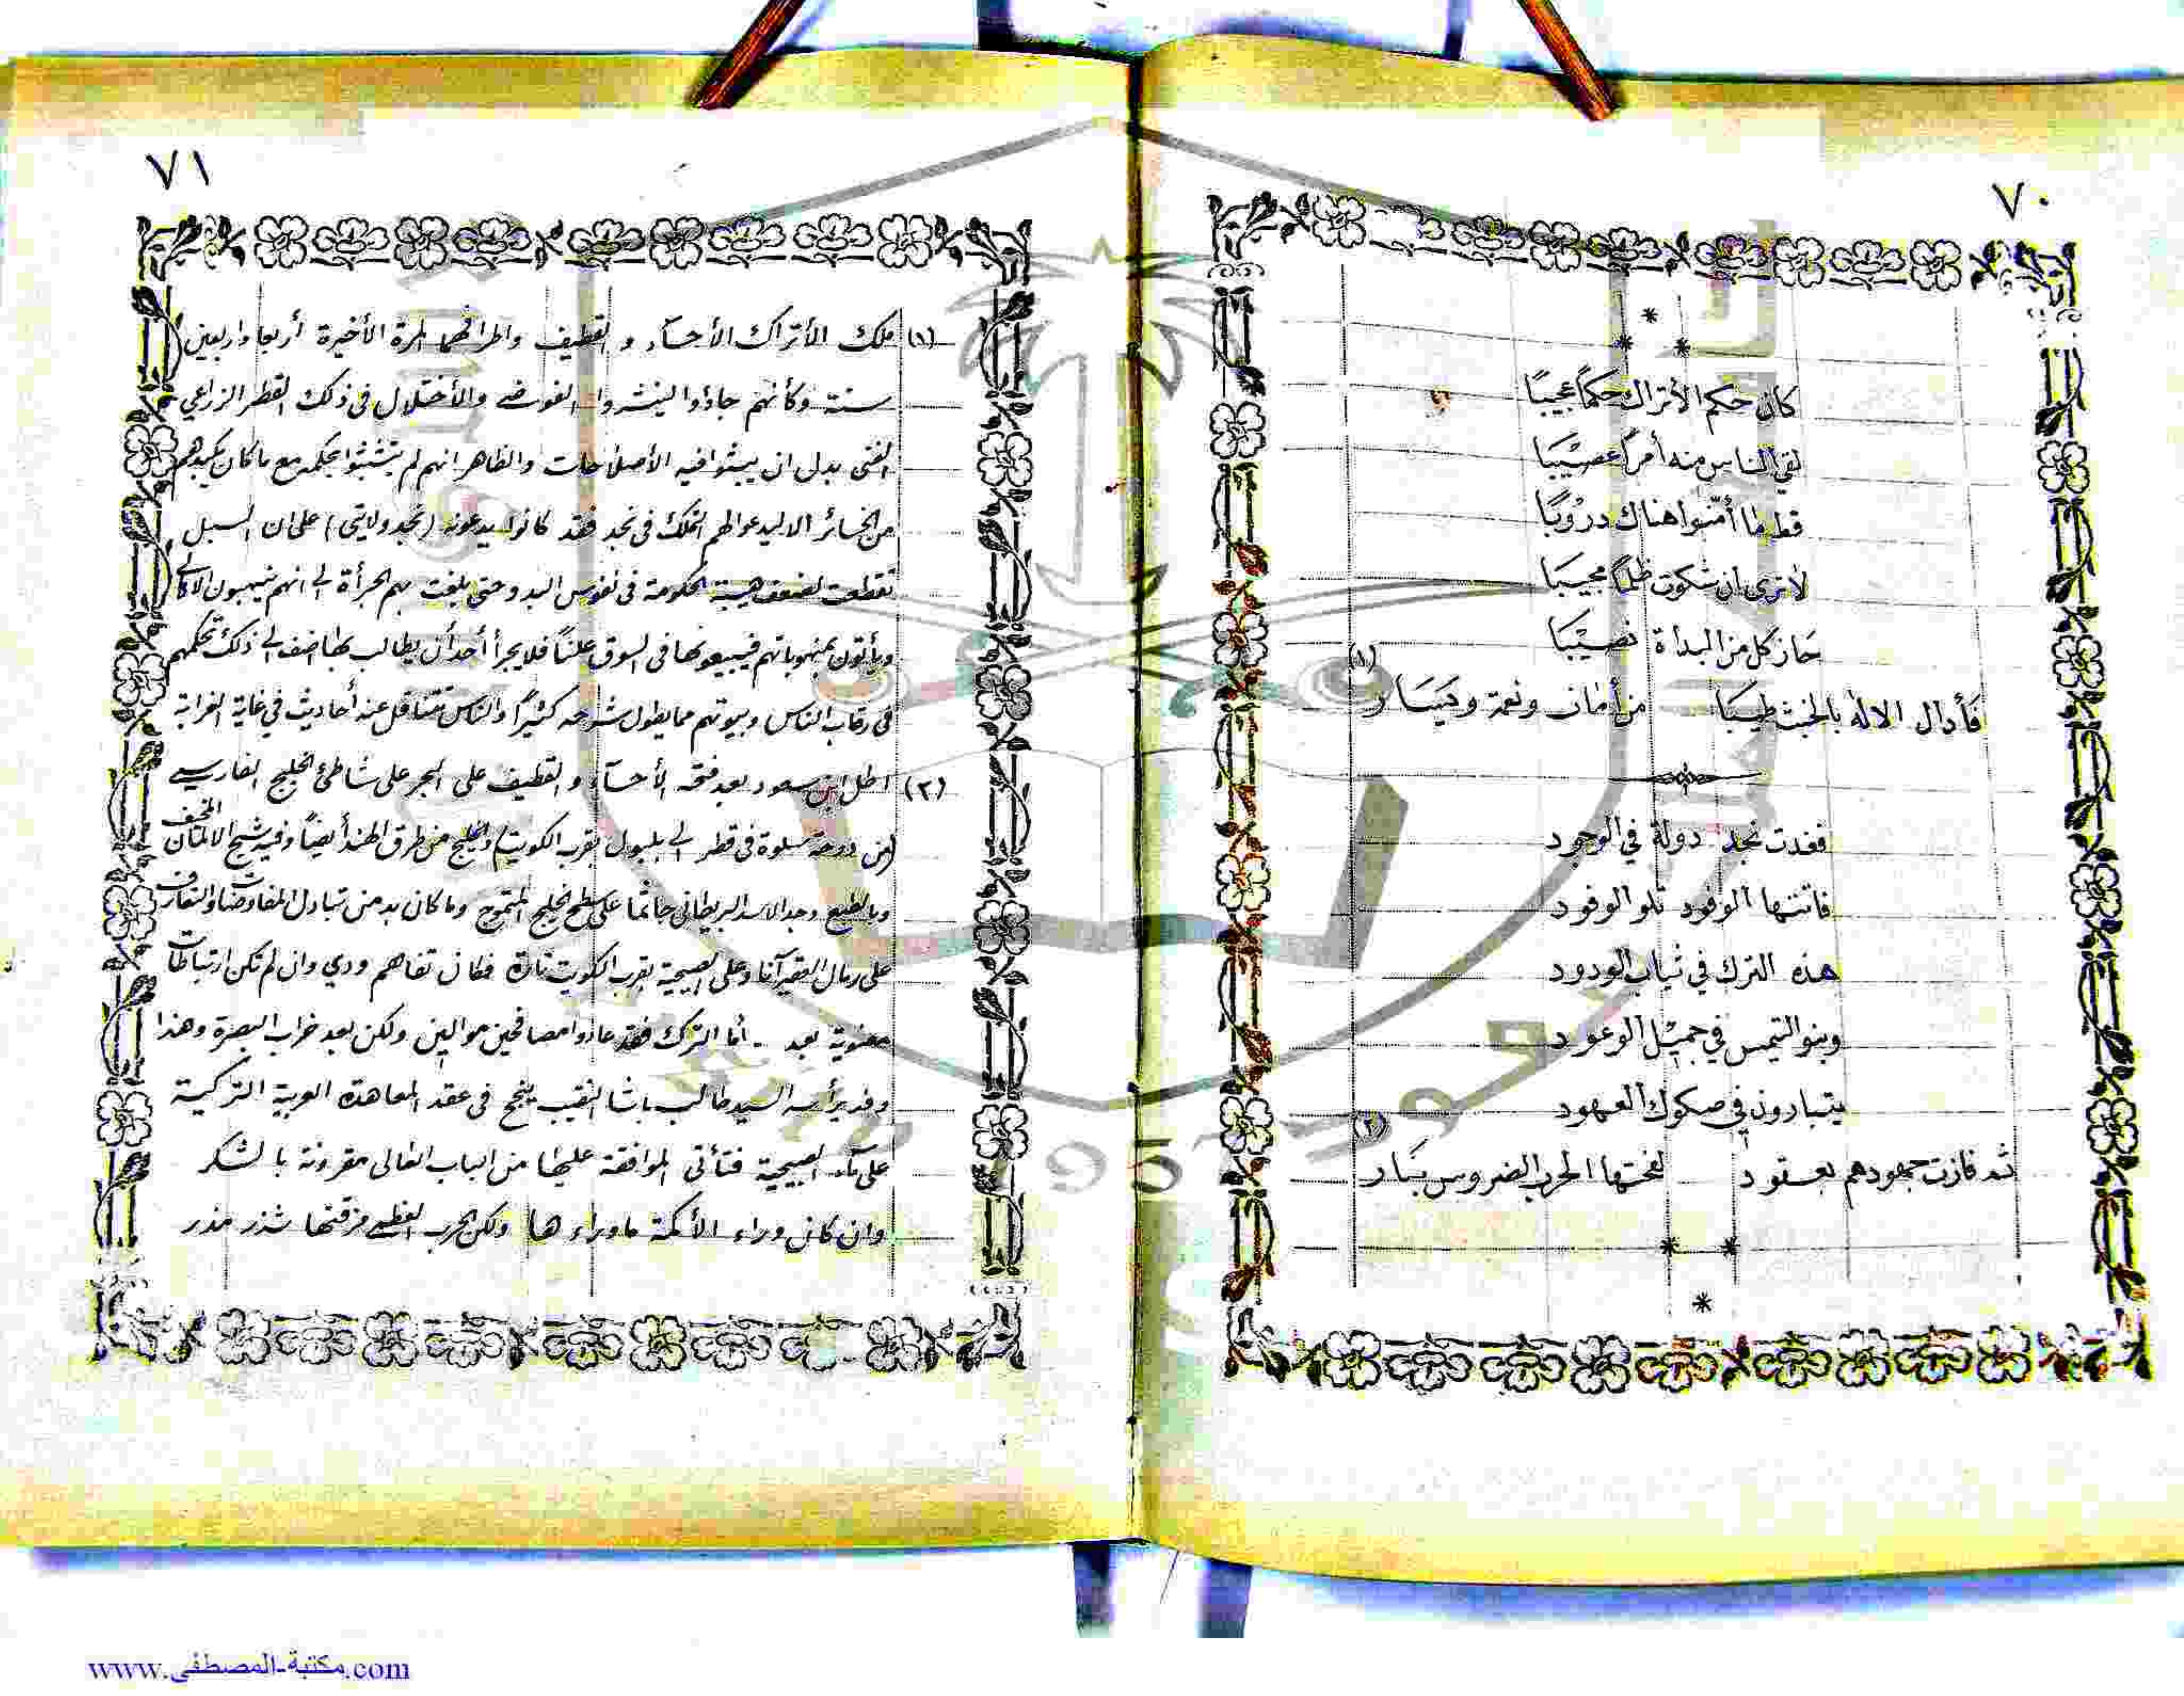 ٧٠
كان حكم الأتراك حكماً عجيبا
لقي الناس منه أمراً عصيبا
قط ما أمّنوا هناك دروبا
لا ترى ان شكوت ظلماً مجيبا
حاز كل من البداة نصيبا
(١)
فأدال الاله بالخبث طيبا من أمان ونعمة ويسار
فغدت نجد دولة في الوجود
فاتتها الوفود تلو الوفود
هذه الترك في ثياب الودود
وبنو التيمس في جميل الوعود
يتبارون في صكوك العهود
(٢)
ثم فازت جهودهم بعقود لفحتها الحرب الضروس بنار
٧١
(١) ملك الأتراك الأحساء و القطيف واطرافهما للمرة الأخيرة أربعا واربعين
سنة وكأنهم جاؤوا لينشروا الفوضى والأختلال في ذلك القطر الزراعي
الغني بدل ان يبثوا فيه الأصلاحات والظاهر انهم لم يتشبثوا بحكمه مع ما كان يكبدهم
من الخسائر الا ليدعوا لهم التملك في نجد فقد كانوا يدعونه (نجد ولايتي) على ان السبل
تقطعت لضعف هيبة الحكومة في نفوس البدو حتى بلغت بهم الجرأة الى انهم ينهبون الاهالي
ويأتون بمنهوباتهم فيبيعونها في السوق علناً فلا يجرأ أحد أن يطالب بها اضف الى ذلك تحكمهم
في رقاب الناس وبيوتهم مما يطول شرحه كثيراً والناس تتناقل عنه أحاديث في غاية الغرابة
(٢) اطل ابن سعود بعد فتحه الأحساء و القطيف على البحر على شاطئ الخليج الفارسي
(من دوحة سلوة في قطر الى بلبول بقرب الكويت) والخليج من طرق الهند أيضاً وفيه شبح الالمان المخيف
وبالطبع وجد الاسد البريطاني جاثما على سطح الخليج المتموج وما كان بد من تبادل المفاوضات والتعارف
على رمال العقير آنا وعلى الصبيحية بقرب الكويت تارة فكان تفاهم ودي وان لم تكن ارتباطات
معنوية بعد - أما الترك فقد عادوا مصافحين موالين ولكن بعد خراب البصرة وهذا
وفد يرأسه السيد طالب باشا النقيب ينجح في عقد المعاهدة العربية التركية
على ماء الصبيحية فتأتي الموافقة عليها من الباب العالي مقرونة بالشكر
وان كان وراء الأكمة ما وراءها ولكن الحرب العظمى مزقتها شذر مذر
www.مكتبة-المصطفى.com